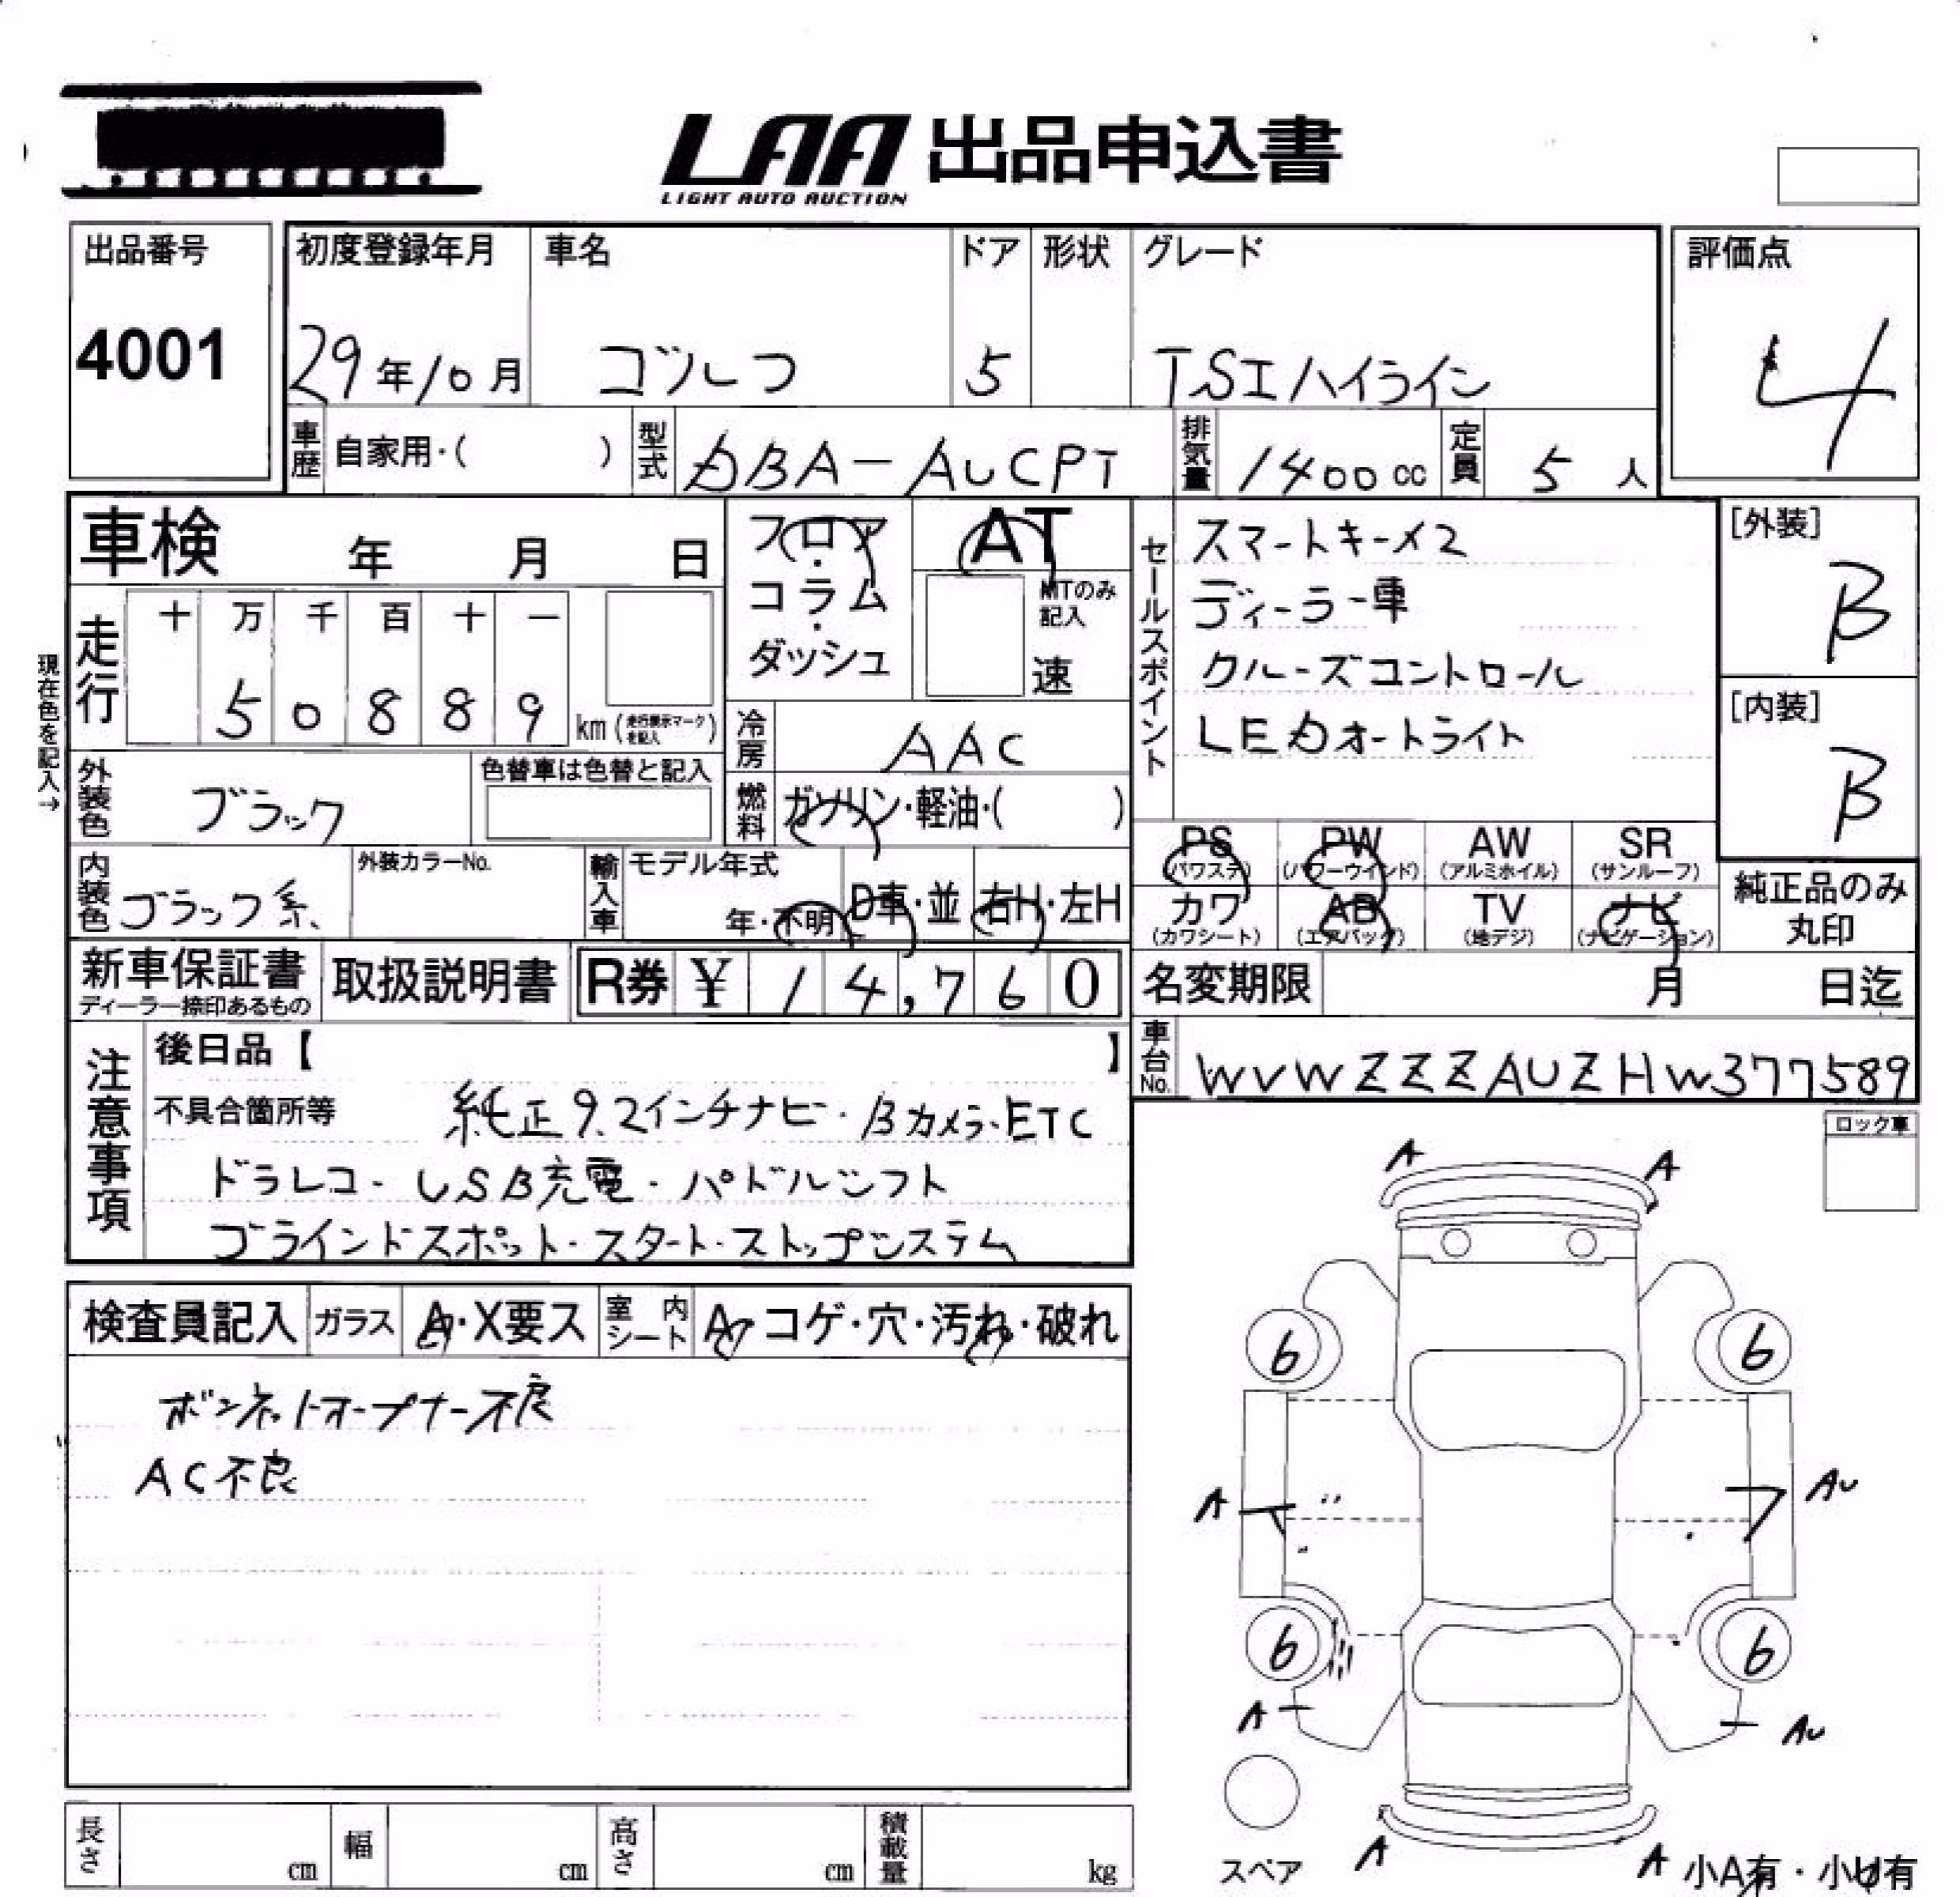 LAA 出品申込書
LIGHT AUTO AUCTION
出品番号
4001
初度登録年月
29年10月
車名
ゴルフ
ドア
5
形状
グレード
TSIハイライン
評価点
4
車歴
自家用・( )
型式
DBA-AUCPT
排気量
1400cc
定員
5人
車検 年 月 日
フロア・コラム・ダッシュ
AT
MTのみ記入
速
セールスポイント
スマートキーメ2
ディーラー車
クルーズコントロール
LEDオートライト
[外装]
B
[内装]
B
現在色を記入→
走行
十 万 千 百 十 一
5 0 8 8 9
km (走行表示マークを記入)
冷房
AAC
外装色
ブラック
色替車は色替と記入
燃料
ガソリン・軽油・( )
PS (パワステ)
PW (パワーウインド)
AW (アルミホイル)
SR (サンルーフ)
カワ (カワシート)
AB (エアバッグ)
TV (地デジ)
ナビ (ナビゲーション)
純正品のみ丸印
内装色
ブラック系
外装カラーNo.
輸入車
モデル年式
年・不明
D車・並
右H・左H
新車保証書
ディーラー捺印あるもの
取扱説明書
R券 ¥ 14,760
名変期限 月 日迄
車台No.
WVWZZZAUZHW377589
注意事項
後日品【 】
不具合箇所等 純正9.2インチナビ・Bカメラ・ETC
ドラレコ・USB充電・パドルシフト
ブラインドスポット・スタート・ストップシステム
ロック車
検査員記入
ガラス
A・X要ス
室内シート
A・コゲ・穴・汚れ・破れ
ボンネットオープナー不良
AC不良
A A
6 6
A AU
6 6
A AU
A A
スペア
小A有・小U有
長さ cm
幅 cm
高さ cm
積載量 kg